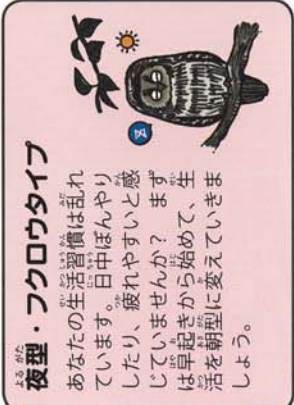 夜型・フクロウタイプ
あなたの生活習慣は乱れ
ています。日中ぼんやり
したり、疲れやすいと感
じていませんか？　まず
は早起きから始めて、生
活を朝型に変えていきま
しょう。